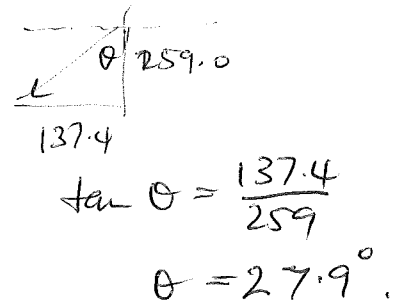 θ 259.0
137.4
tan θ = 137.4/259
θ = 27.9°.